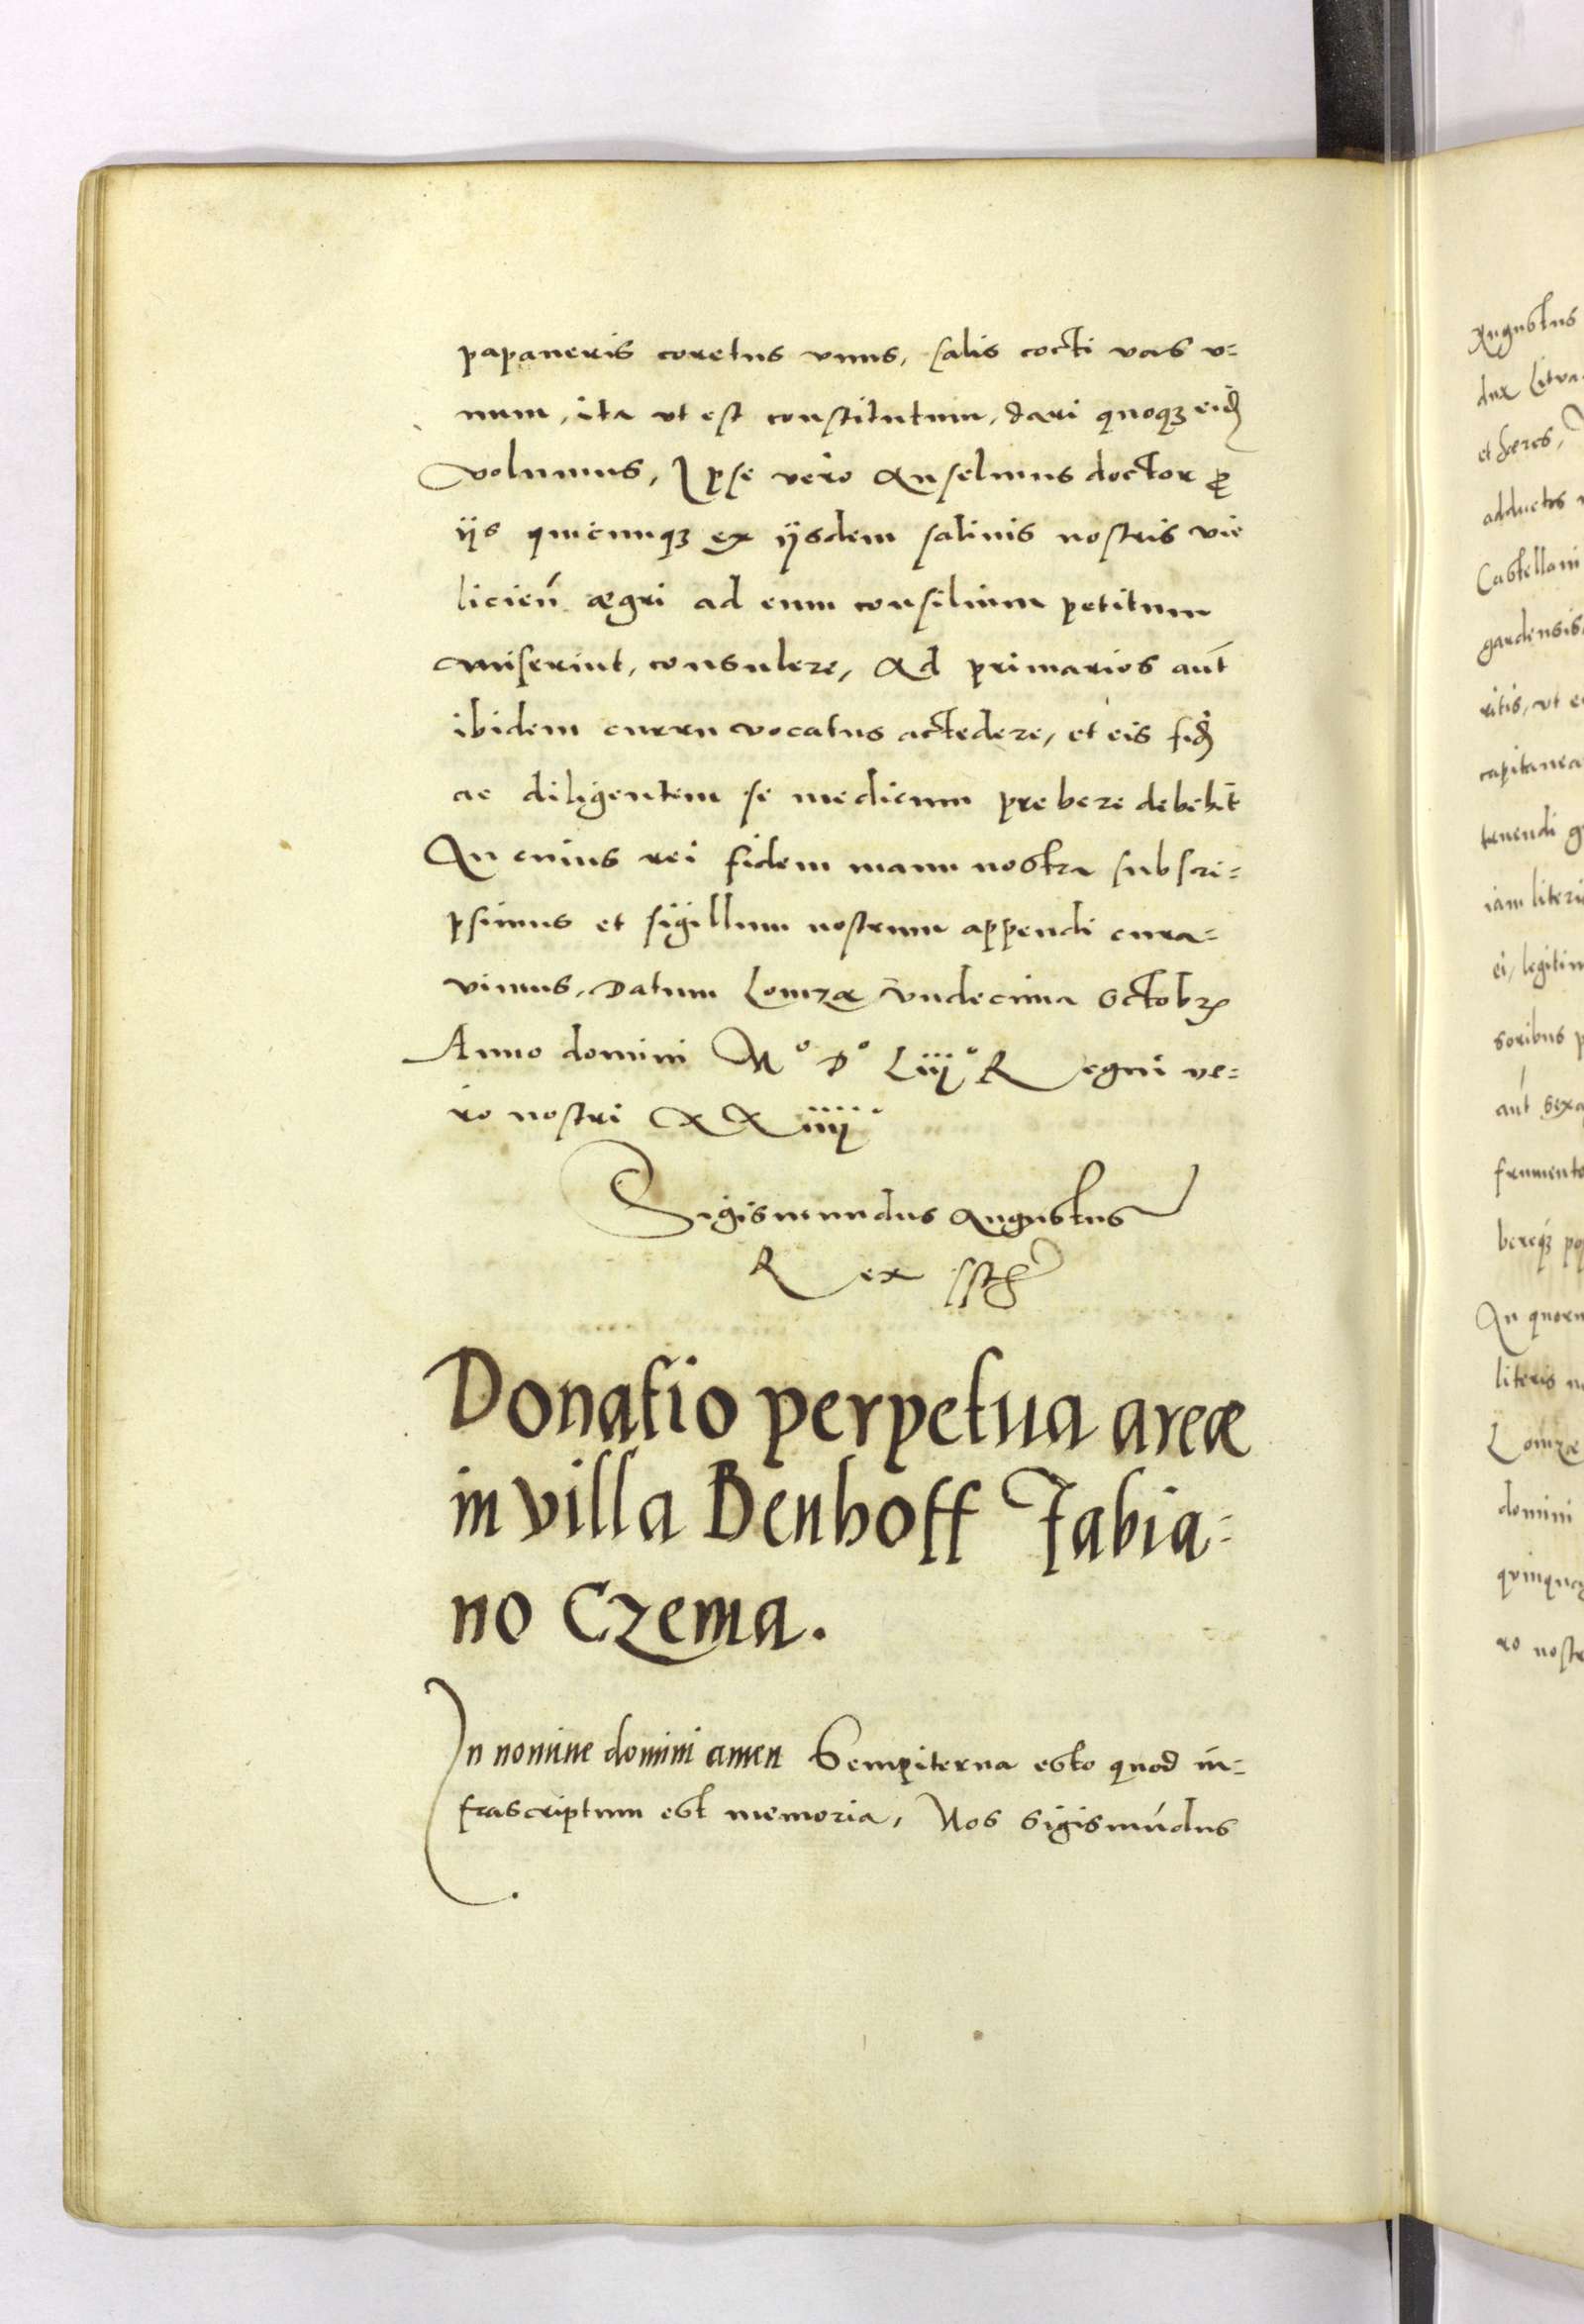 papaueris coretus vnus, salis cocti vas v=
num, ita vt est constitutum, dari quoqꝫ eid
volumus, Ipse vero Anselmus doctor ꝓ
ijs quicunqꝫ ex ijsdem salinis nostris vie
licień ægri ad eum consilium petitum
miserint, consulere, Ad primarios aut̄
ibidem curru vocatus accedere, et eis fid
ac diligentem se medicum prebere debebit
In cuius rei fidem manu nostra subscri=
psimus et sigillum nostrum appendi cura=
vimus. Datum Lomzæ vndecima Octobꝝ
Anno domini M° D° Liij° Regni ve=
ro nostri XXiiij°
Sigismundus Augustus
Rex sst
Donatio perpetua areæ
in villa Benhoff Fabia=
no Czema.
In nomine domini amen Sempiterna esto quod in=
frascriptum est memoria, Nos Sigismūdus
Augustus
dux Litva
et hæres,
adductos
Castellani
gardensis
ritis, vt e
capitanea
tenendi g
iam literi
ei, legitim
soribus p
aut̄ sexa
frumento
bereqꝫ po
In quoru
literis n
Lomzæ
domini
quinqua
ro nostr